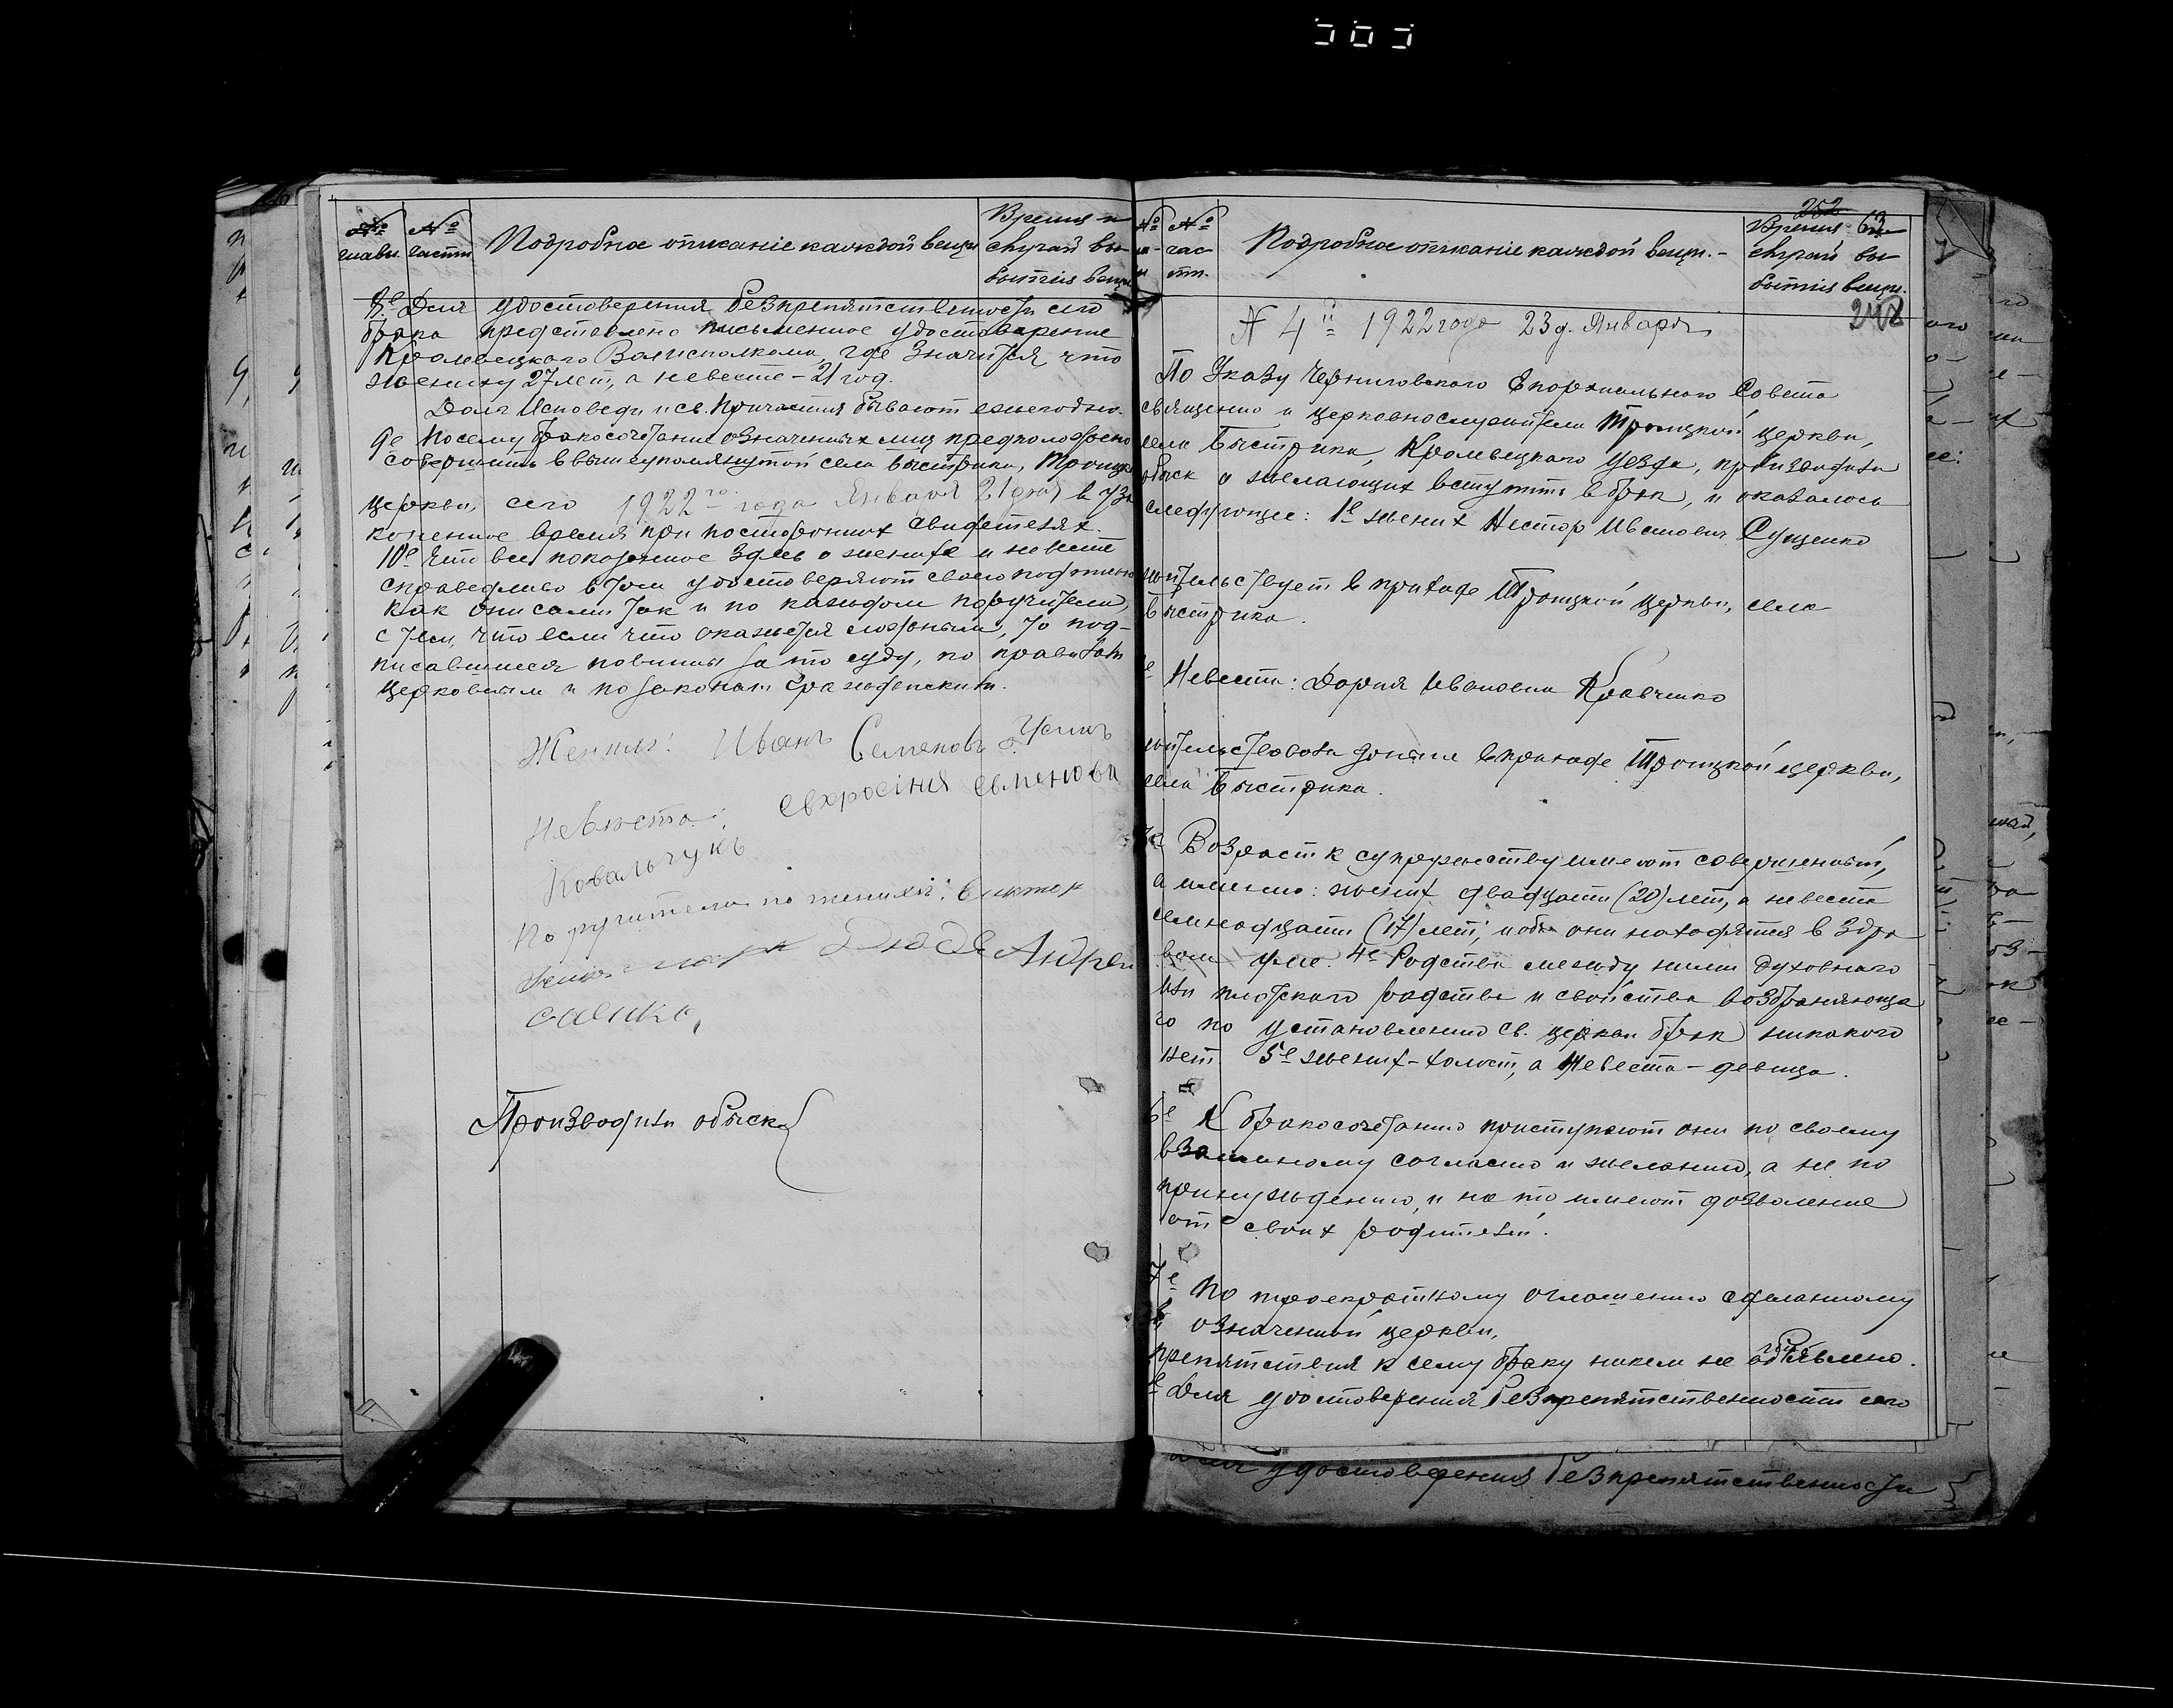 № главы
№ части
Подробное описаніе каждой вещи
Время и случай выбытія вещи
8е Для удостоверения безпрепятственности сего
брака представлено письменное удостоверение
Кролевецкого Волисполкома, где значится что
жениху 27 лет, а невесте – 21 год.
Долг Исповеди и св. Причастия бывают ежегодно.
9е Посему бракосочетание означенных лиц предположено
совершить в вышеупомянутой села Быстрика, Троицк
церкви, сего 1922го года Января 21 дня в уза
коненное время при посторонних свидетелях.
10е Что все показанное здесь о женихе и невесте
справедливо в том удостоверяют своею подписью
как они сами так и по каждом поручители,
с тем, что если что окажется ложным, то под-
писавшиеся повинны за то суду, по правилам
церковным и по законам гражданским.
Жених: Иванъ Семеновъ
Невеста: Евхросіния Семенова
Ковальчукъ
Поручители по жениху:
Андрей
Производили обыск
503
252
63
№
№ части
Подробное описаніе каждой вещи. –
Время и случай выбытія вещи.
248
№ 4й 1922 года 23 д. Января
По Указу Черниговского Епархиального Совета
священно и церковнослужители Троицкой церкви,
села Быстрика, Кролевецкого уезда, производили
обыск о желающих вступить в брак, и оказалось
следующее: 1е жених Нестор Иванович Сущенко
жительствует в приходе Троицкой церкви, села
Быстрика.
Невеста: Дария Ивановна Кравченко
жительствовала доныне в приходе Троицкой церкви,
села Быстрика.
3е Возраст к супружеству имеют совершенный,
а именно: жених двадцати (20) лет, а невеста
семнадцати (17) лет, и оба они находятся в здра
вом уме. 4е Родства между ними духовного
или плотского родства и свойства возбраняюща
го по установлению св. церкви брак никакого
нет. 5е жених – холост, а невеста – девица.
6е К бракосочетанию приступают они по своему
взаимному согласию и желанию, а не по
принуждению, и на то имеют дозволение
от своих родителей.
7е По троекратному оглашению сделанному
в означенной церкви,
препятствия к сему браку никем не объявлено.
Для удостоверения безпрепятственности сего
Для удостоверения безпрепятственности